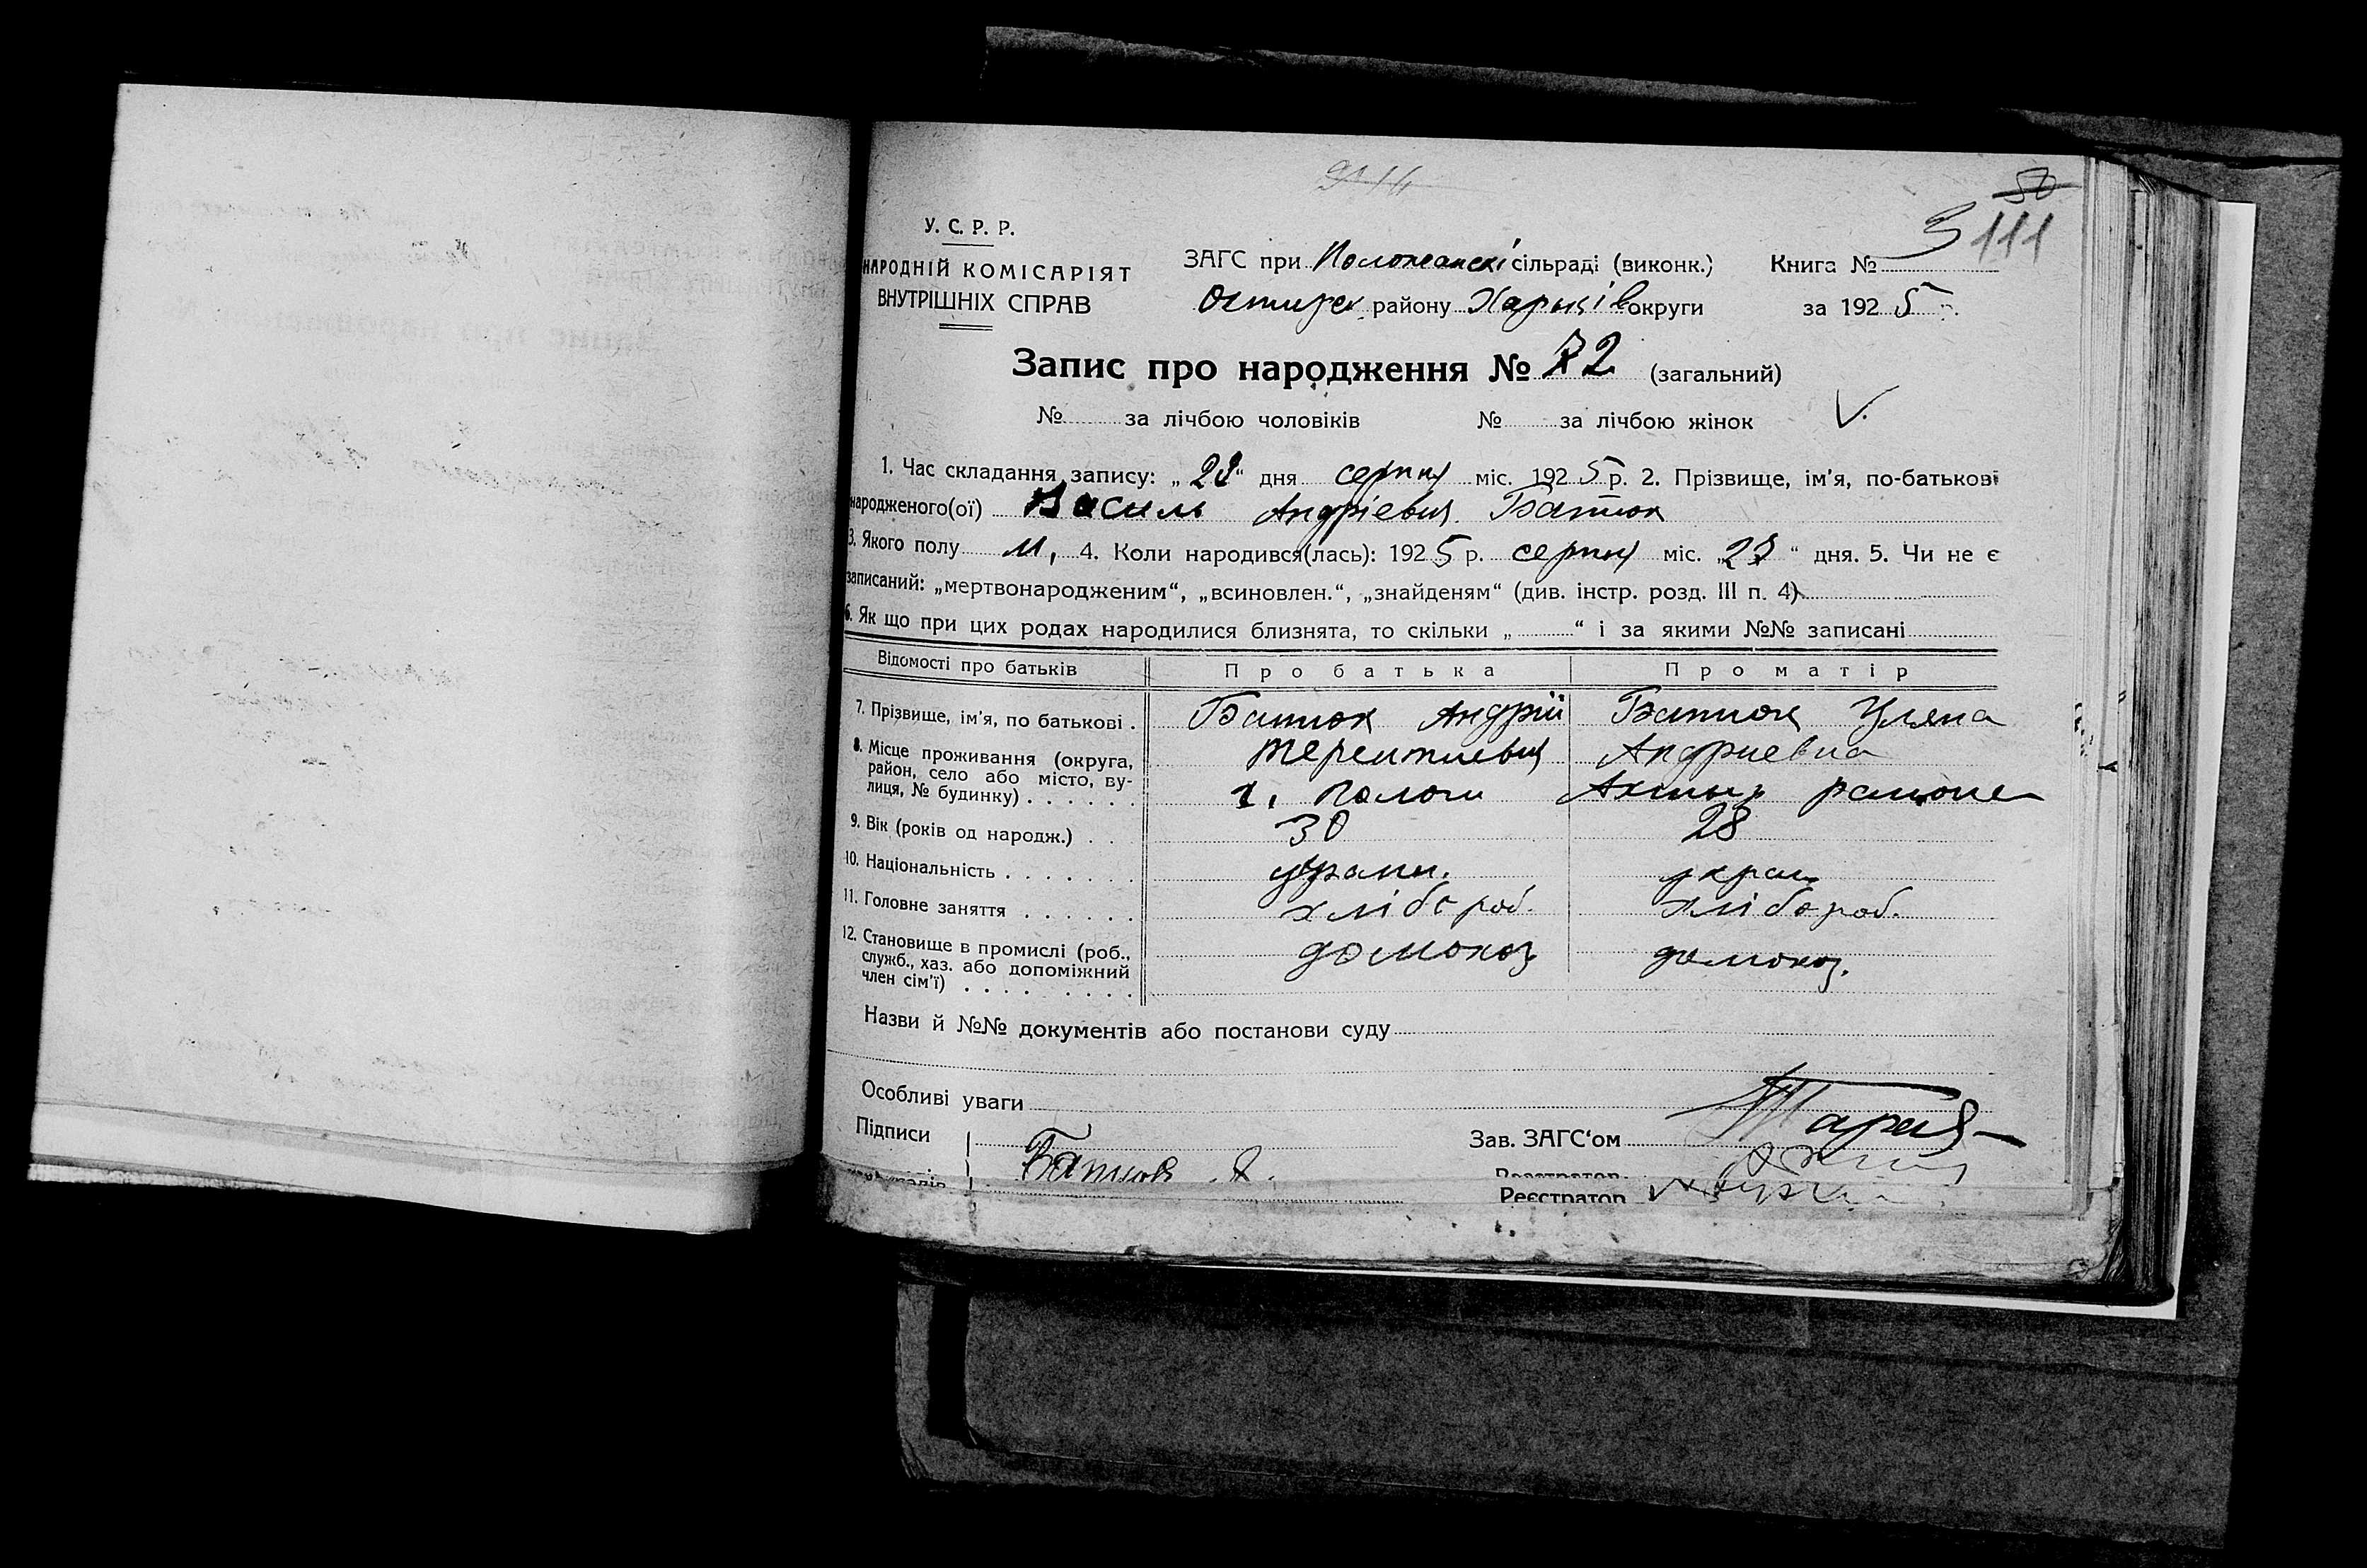 50
111
У. С. Р. Р.
НАРОДНІЙ КОМІСАРІЯТ
ВНУТРІШНІХ СПРАВ
ЗАГС при сільраді (виконк.)
району Харьків округи
Книга № 5
за 1925 р.
Запис про народження № 72 (загальний)
№ за лічбою чоловіків № за лічбою жінок
1. Час складання запису: „ “ дня серпня міс. 1925 р. 2. Прізвище, ім'я, по-батькові
народженого(ої) Василь Андрієвич Батюк
3. Якого полу м, 4. Коли народився(лась): 1925 р. серпня міс. „23“ дня. 5. Чи не є
записаний: „мертвонародженим“, „всиновлен.“, „знайденям“ (див. інстр. розд. III п. 4)
6. Як що при цих родах народилися близнята, то скільки „ “ і за якими №№ записані
Відомості про батьків Про батька Про матір
7. Прізвище, ім'я, по батькові . Батюк Андрій Батюк Уляна
Терентиевич Андриевна
8. Місце проживання (округа, район, село або місто, вулиця, № будинку) . . . . . . Пологи Ахтыр району
9. Вік (років од народж.) . . 30 28
10. Національність . . . . . . . україн. україн
11. Головне заняття . . . . . . хлібороб. хлібороб.
12. Становище в промислі (роб., служб., хаз. або допоміжний член сім'ї) . . . . . . . . домохоз домохоз.
Назви й №№ документів або постанови суду
Особливі уваги
Підписи
Батюк А.
Зав. ЗАГС'ом
Реєстратор
Реєстратор